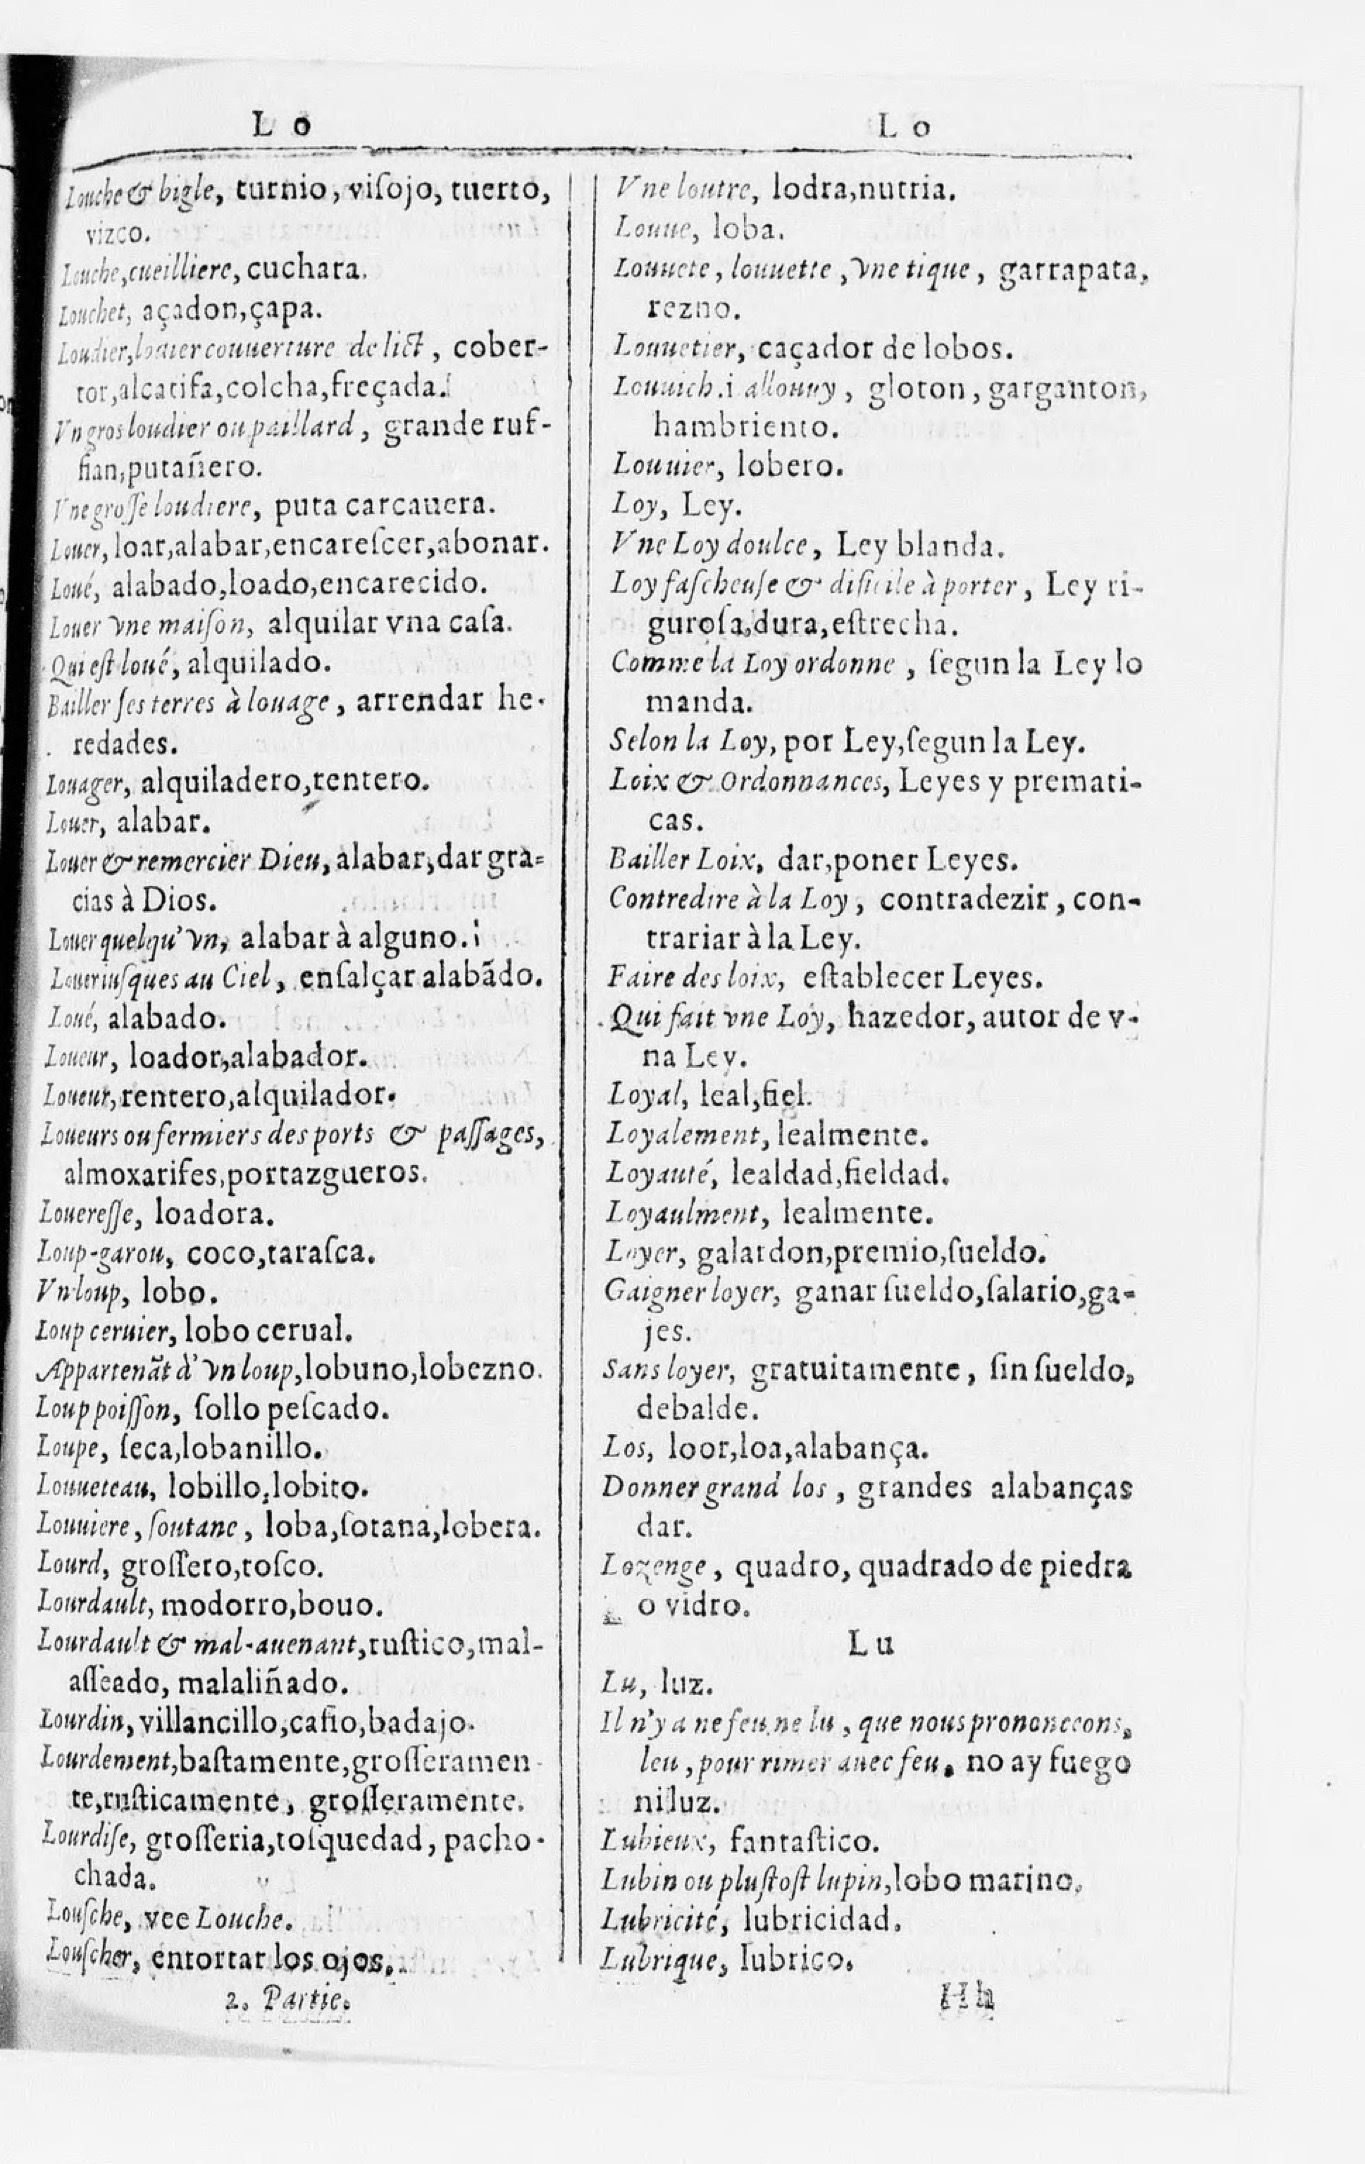 L o
Louche & bigle, turnio, viſojo, tuerto,
vizco.
Louche, cueilliere, cuchara.
Louchet, açadon, çapa.
Loudier, lodier couuerture de lict, cober-
tor, alcatifa, colcha, freçada.
Vn gros loudier ou paillard, grande ruf-
fian, putañero.
Vne groſſe loudiere, puta carcauera.
Louer, loar, alabar, encareſcer, abonar.
Loué, alabado, loado, encarecido.
Louer vne maiſon, alquilar vna caſa.
Qui eſt loué, alquilado.
Bailler ſes terres à louage, arrendar he-
redades.
Louager, alquiladero, rentero.
Louer, alabar.
Louer & remercier Dieu, alabar, dar gra-
cias à Dios.
Louer quelqu'vn, alabar à alguno.
Louer iuſques au Ciel, enſalçar alabãdo.
Loué, alabado.
Loueur, loador, alabador.
Loueur, rentero, alquilador.
Loueurs ou fermiers des ports & paſſages,
almoxarifes, portazgueros.
Louereſſe, loadora.
Loup-garou, coco, taraſca.
Vn loup, lobo.
Loup ceruier, lobo cerual.
Appartenãt à vn loup, lobuno, lobezno.
Loup poiſſon, ſollo peſcado.
Loupe, ſeca, lobanillo.
Louueteau, lobillo, lobito.
Louuiere, ſoutane, loba, ſotana, lobera.
Lourd, groſſero, toſco.
Lourdault, modorro, bouo.
Lourdault & mal-auenant, ruſtico, mal-
aſſeado, malaliñado.
Lourdin, villancillo, cafio, badajo.
Lourdement, baſtamente, groſſeramen-
te, ruſticamente, groſſeramente.
Lourdiſe, groſſeria, toſquedad, pacho-
chada.
Louſche, vee Louche.
Louſcher, entortar los ojos.
2. Partie.
L o
Vne loutre, lodra, nutria.
Louue, loba.
Louuete, louuette, vne tique, garrapata,
rezno.
Louuetier, caçador de lobos.
Louuich .i allouuy, gloton, garganton,
hambriento.
Louuier, lobero.
Loy, Ley.
Vne Loy doulce, Ley blanda.
Loy faſcheuſe & dificile à porter, Ley ri-
guroſa, dura, eſtrecha.
Comme la Loy ordonne, ſegun la Ley lo
manda.
Selon la Loy, por Ley, ſegun la Ley.
Loix & Ordonnances, Leyes y premati-
cas.
Bailler Loix, dar, poner Leyes.
Contredire à la Loy, contradezir, con-
trariar à la Ley.
Faire des loix, eſtablecer Leyes.
Qui fait vne Loy, hazedor, autor de v-
na Ley.
Loyal, leal, fiel.
Loyalement, lealmente.
Loyauté, lealdad, fieldad.
Loyaulment, lealmente.
Loyer, galardon, premio, ſueldo.
Gaigner loyer, ganar ſueldo, ſalario, ga-
jes.
Sans loyer, gratuitamente, ſin ſueldo,
debalde.
Los, loor, loa, alabança.
Donner grand los, grandes alabanças
dar.
Lozenge, quadro, quadrado de piedra
o vidro.
L u
Lu, luz.
Il n'y a ne feu, ne lu, que nous prononcecons,
leu, pour rimer auec feu, no ay fuego
ni luz.
Lubieux, fantaſtico.
Lubin ou pluſtoſt lupin, lobo marino.
Lubricité, lubricidad.
Lubrique, lubrico.
Hh